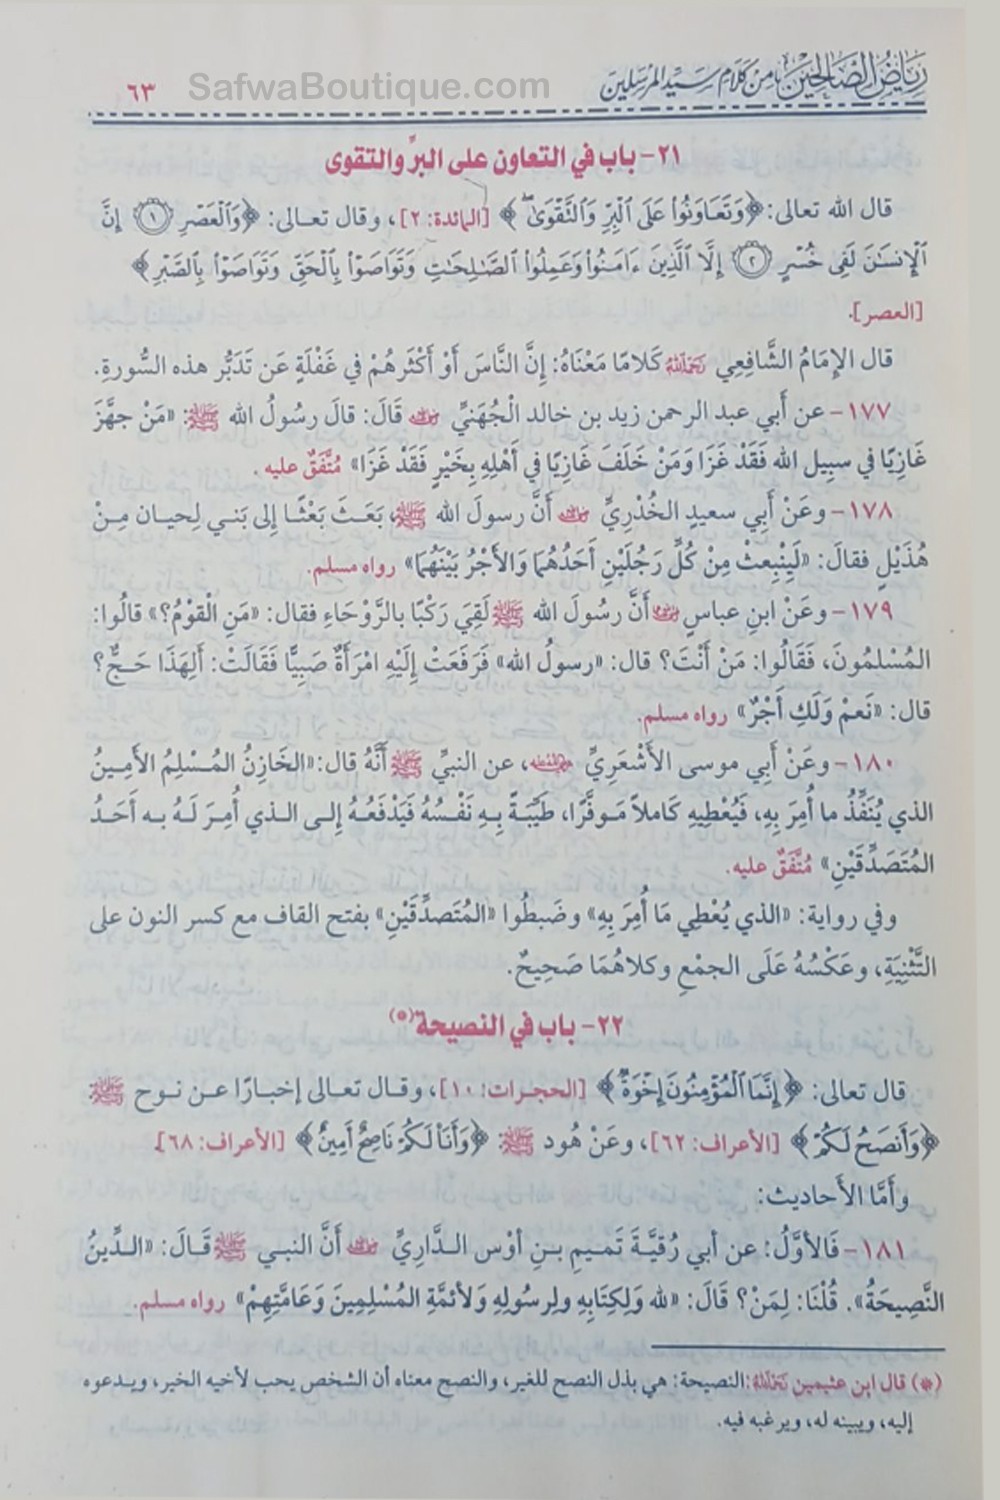 رياض الصالحين من كلام سيد المرسلين
SafwaBoutique.com
٦٣
٢١- باب في التعاون على البرِّ والتقوى
قال الله تعالى: ﴿وَتَعَاوَنُوا۟ عَلَى ٱلْبِرِّ وَٱلتَّقْوَىٰ ۖ﴾ [المائدة: ٢]، وقال تعالى: ﴿وَٱلْعَصْرِ ۝١ إِنَّ
ٱلْإِنسَـٰنَ لَفِى خُسْرٍ ۝٢ إِلَّا ٱلَّذِينَ ءَامَنُوا۟ وَعَمِلُوا۟ ٱلصَّـٰلِحَـٰتِ وَتَوَاصَوْا۟ بِٱلْحَقِّ وَتَوَاصَوْا۟ بِٱلصَّبْرِ﴾
[العصر].
قال الإمَامُ الشَّافِعِي رَحِمَهُ اللَّهُ كَلامًا مَعْنَاهُ: إنَّ النَّاسَ أَوْ أَكْثَرُهُمْ في غَفْلَةٍ عَن تَدَبُّر هذه السُّورةِ.
١٧٧- عن أَبي عبد الرحمن زيد بن خالد الْجُهَنيِّ رضي الله عنه قَالَ: قالَ رسُولُ الله ﷺ: «مَنْ جهَّزَ
غَازِيًا في سبِيلِ الله فَقَدْ غَزَا وَمَنْ خَلَفَ غَازِيًا في أَهْلِهِ بِخَيْرٍ فَقَدْ غَزَا» مُتَّفَقٌ عليه.
١٧٨- وعَنْ أَبي سعيدٍ الخُدْرِيِّ رضي الله عنه أَنَّ رسولَ الله ﷺ، بَعَثَ بَعْثًا إلى بَني لِحيان مِنْ
هُذَيْلٍ فقالَ: «لِيَنْبعِثْ مِنْ كُلِّ رَجُلَيْنِ أَحَدُهُمَا وَالأَجْرُ بَيْنَهُمَا» رواه مسلم.
١٧٩- وعَنْ ابنِ عباسٍ رضي الله عنهما أَنَّ رسُولَ الله ﷺ لَقِيَ رَكْبًا بالرَّوْحَاءِ فقال: «مَنِ الْقوْمُ؟» قالُوا:
المُسْلمُونَ، فَقَالُوا: مَنْ أَنْتَ؟ قال: «رسولُ الله» فَرَفَعَتْ إِلَيْهِ امْرَأَةٌ صَبِيًّا فَقَالَتْ: أَلِهَذَا حَجٌّ؟
قال: «نَعمْ وَلَكِ أَجْرٌ» رواه مسلم.
١٨٠- وعَنْ أَبِي موسى الأَشْعَرِيِّ رضي الله عنه، عن النبيِّ ﷺ أَنَّهُ قال: «الخَازِنُ المُسْلِمُ الأَمِينُ
الذي يُنَفِّذُ ما أُمِرَ بِهِ، فَيُعْطِيهِ كَاملاً مَوفَّرًا، طَيِّبَةً بِهِ نَفْسُهُ فَيَدْفَعُهُ إلى الذي أُمِرَ لَهُ به أَحَدُ
المُتَصَدِّقَيْنِ» مُتَّفَقٌ عليه.
وفي رواية: «الذي يُعْطِي مَا أُمِرَ بِهِ» وضَبطُوا «المُتَصدِّقَيْنِ» بفتح القاف مع كسر النون على
التَّثْنِيَةِ، وعَكْسُهُ عَلَى الجمْعِ وكلاهُمَا صَحِيحٌ.
٢٢- باب في النصيحة(*)
قال تعالى: ﴿إِنَّمَا ٱلْمُؤْمِنُونَ إِخْوَةٌ﴾ [الحجرات: ١٠]، وقال تعالى إخبارًا عن نوح ﷺ
﴿وَأَنصَحُ لَكُمْ﴾ [الأعراف: ٦٢]، وعَنْ هُود ﷺ: ﴿وَأَنَا۠ لَكُمْ نَاصِحٌ أَمِينٌ﴾ [الأعراف: ٦٨].
وأَمَّا الأَحاديث:
١٨١- فَالأوَّلُ: عن أبي رُقيَّةَ تَميمِ بنِ أوْس الدَّاريِّ رضي الله عنه أَنَّ النبي ﷺ قَالَ: «الدِّينُ
النَّصِيحَةُ». قُلْنَا: لِمَنْ؟ قَالَ: «لله وَلِكِتَابِهِ ولِرسُولِهِ وَلأئمَّةِ المُسْلِمِينَ وَعَامَّتِهِمْ» رواه مسلم.
(*) قال ابن عثيمين رَحِمَهُ اللَّهُ: النصيحة: هي بذل النصح للغير، والنصح معناه أن الشخص يحب لأخيه الخير، ويدعوه
إليه، ويبينه له، ويرغبه فيه.